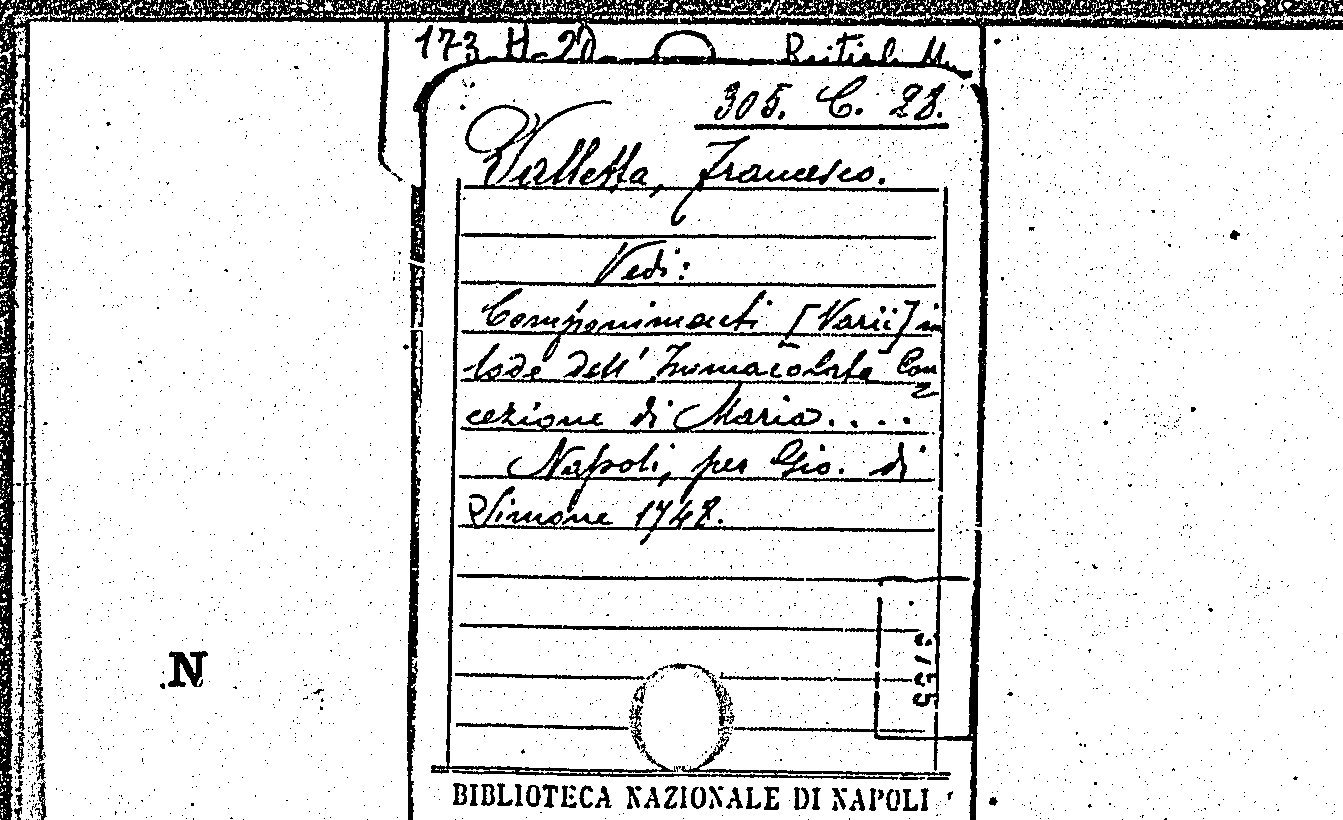 173 H-20
305. C. 28.
Valletta, Francesco.
Vedi:
Componimenti [Varii] in
lode dell' Immacolata Con=
cezione di Maria....
Napoli, per Gio. di
Simone 1748.
N
BIBLIOTECA NAZIONALE DI NAPOLI